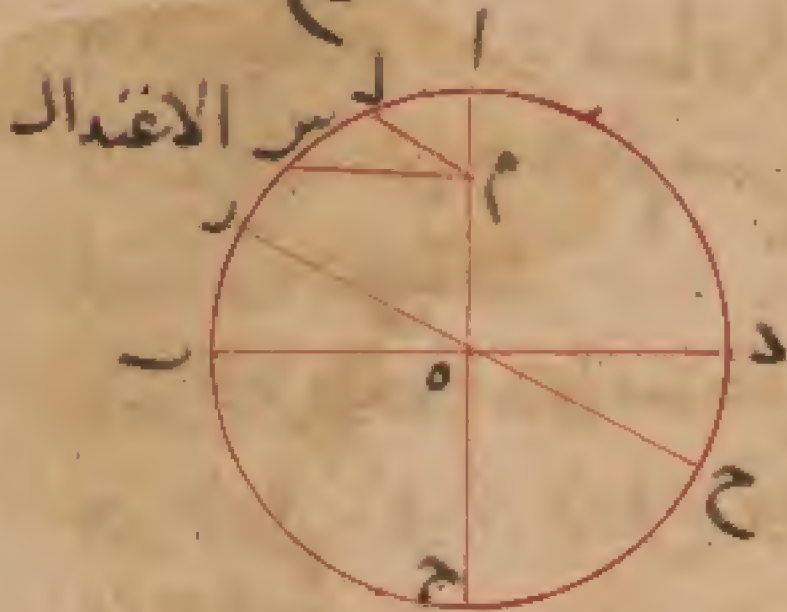 ا
ل
س الاعتدال
م
ر
ب
د
ه
ح
ح